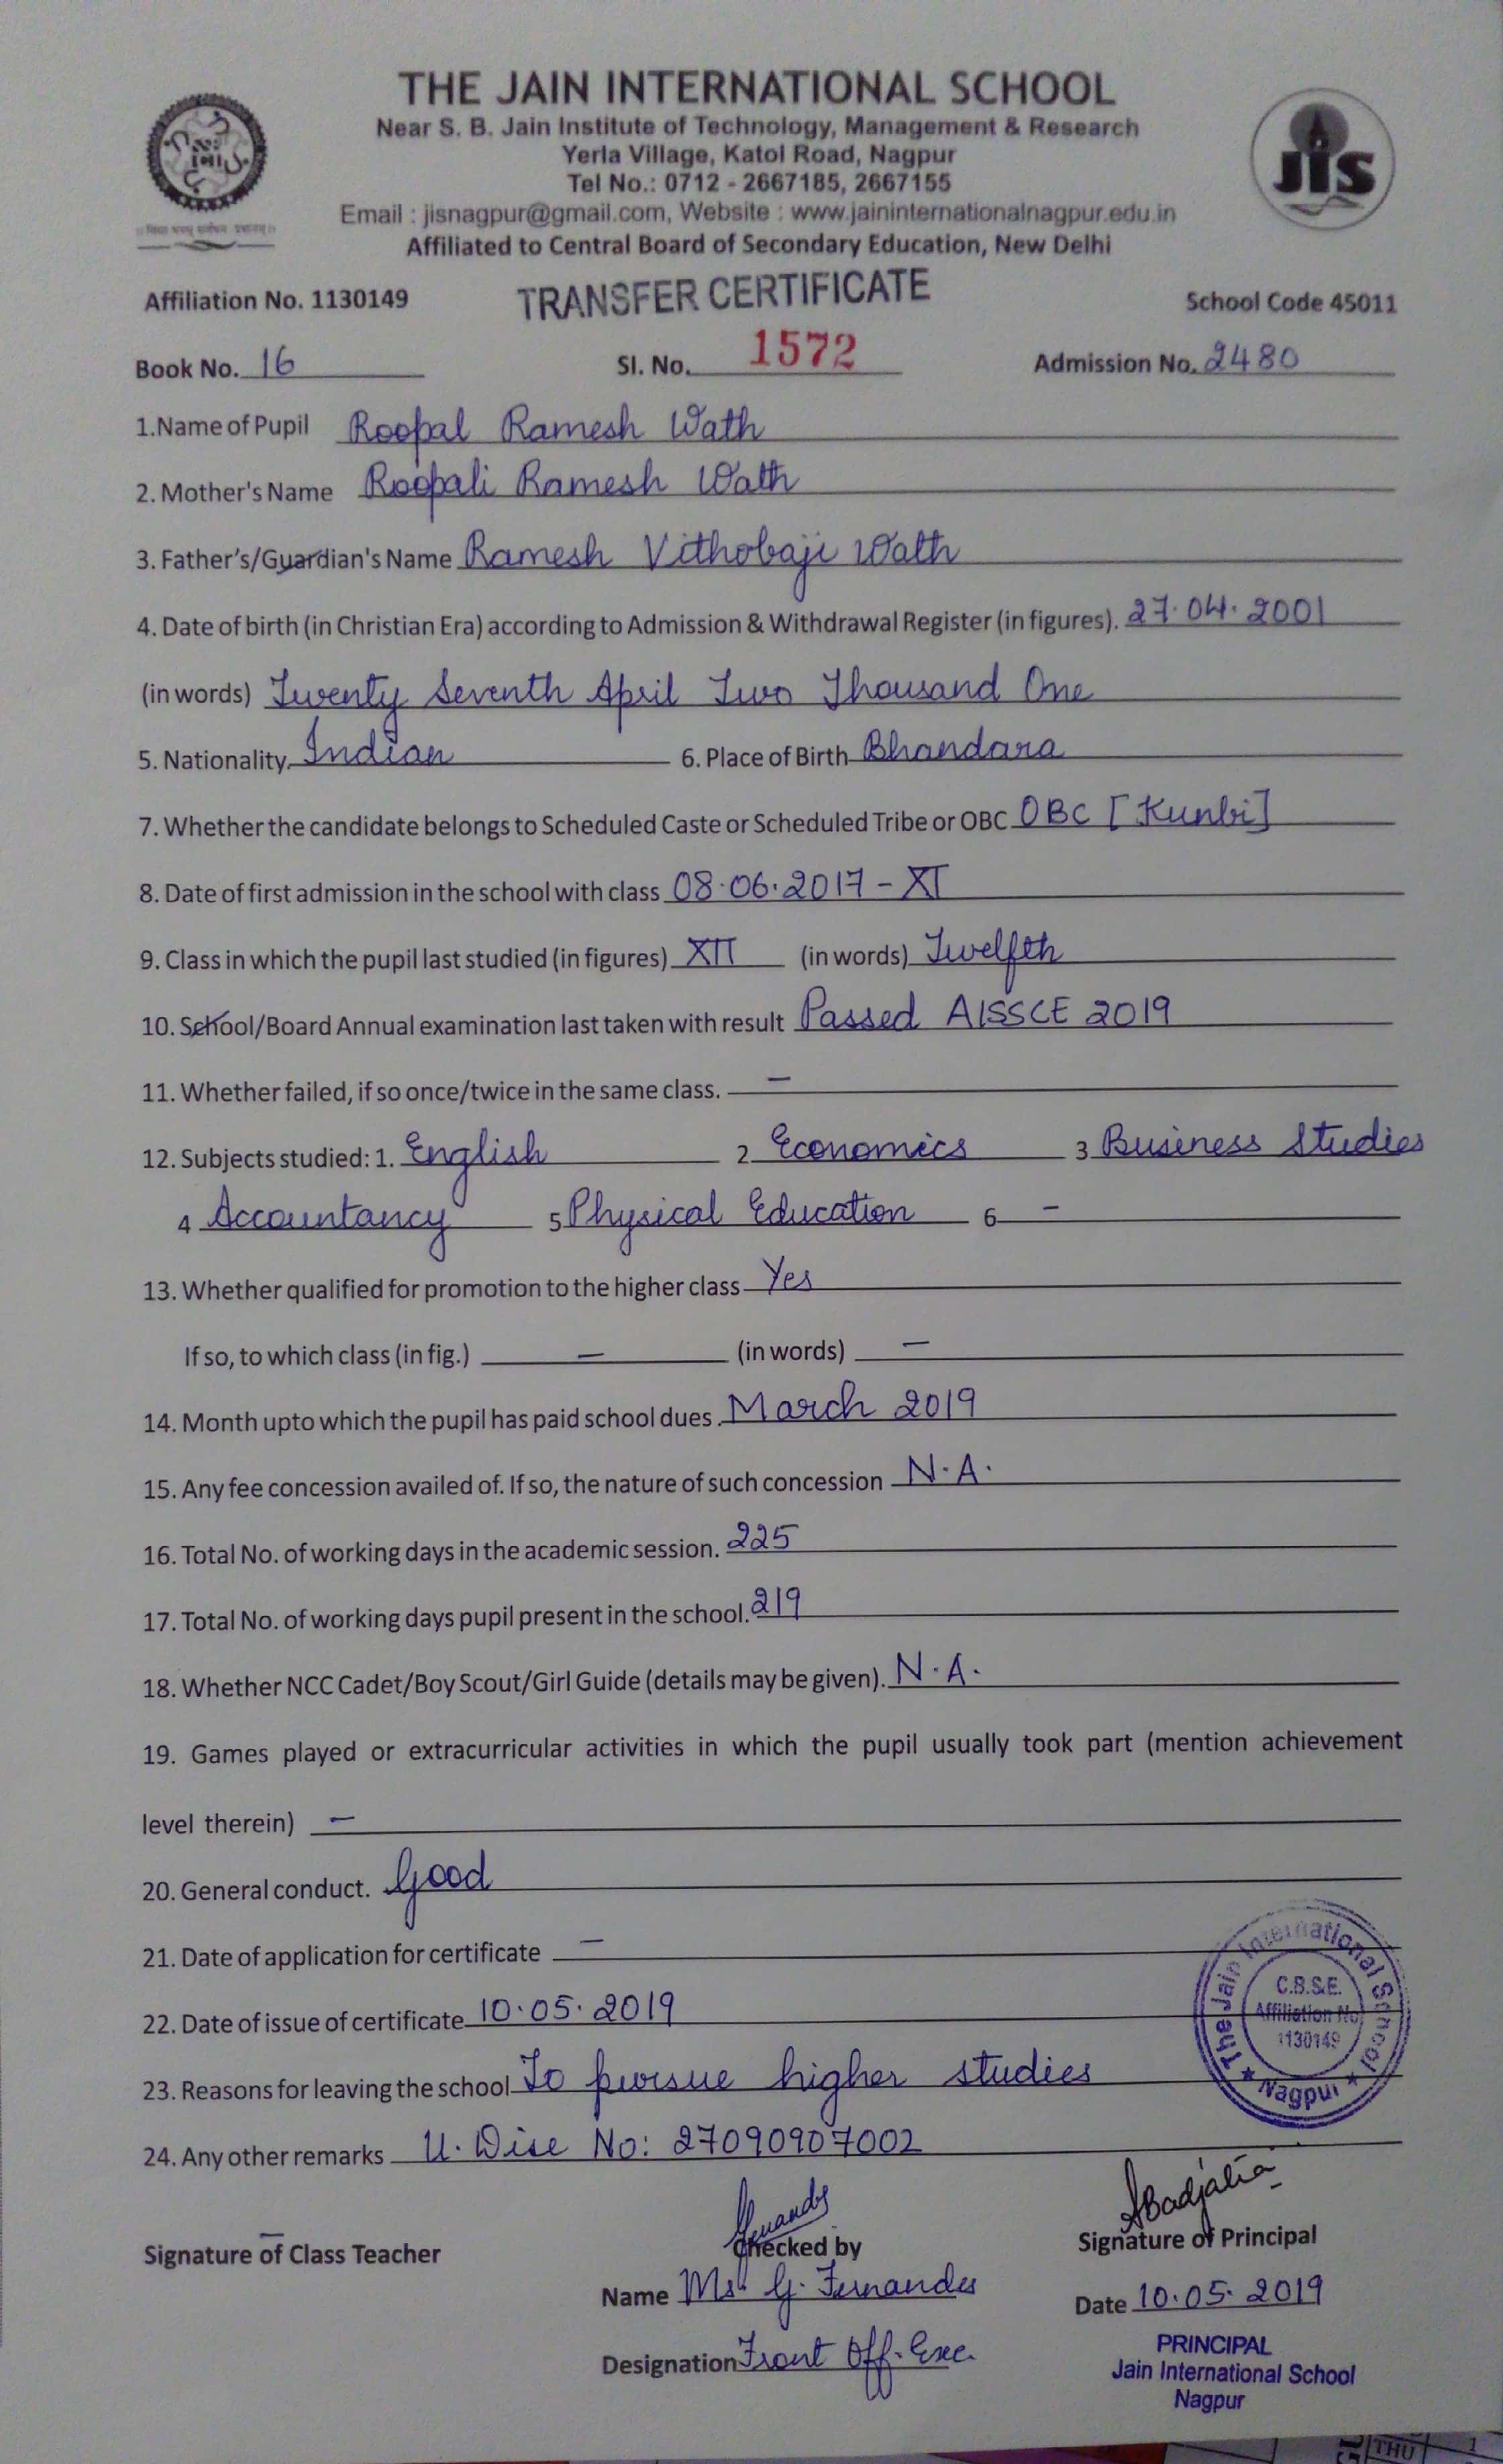 THE JAIN INTERNATIONAL SCHOOL
Near S. B. Jain Institute of Technology, Management & Research
Yerla Village, Katol Road, Nagpur
Tel No.: 0712 - 2667185, 2667155
Email : jisnagpur@gmail.com, Website : www.jaininternationalnagpur.edu.in
Affiliated to Central Board of Secondary Education, New Delhi
JIS
Affiliation No. 1130149 TRANSFER CERTIFICATE School Code 45011
Book No. 16 Sl. No. 1572 Admission No. 2480
1.Name of Pupil Roopal Ramesh Wath
2. Mother's Name Roopali Ramesh Wath
3. Father's/Guardian's Name Ramesh Vithobaji Wath
4. Date of birth (in Christian Era) according to Admission & Withdrawal Register (in figures). 27.04.2001
(in words) Twenty Seventh April Two Thousand One
5. Nationality. Indian 6. Place of Birth Bhandara
7. Whether the candidate belongs to Scheduled Caste or Scheduled Tribe or OBC OBC [Kunbi]
8. Date of first admission in the school with class 08.06.2017 - XI
9. Class in which the pupil last studied (in figures) XII (in words) Twelfth
10. School/Board Annual examination last taken with result Passed AISSCE 2019
11. Whether failed, if so once/twice in the same class. —
12. Subjects studied: 1. English 2 Economics 3 Business Studies
4 Accountancy 5 Physical Education 6 -
13. Whether qualified for promotion to the higher class Yes
If so, to which class (in fig.) — (in words) —
14. Month upto which the pupil has paid school dues. March 2019
15. Any fee concession availed of. If so, the nature of such concession N.A.
16. Total No. of working days in the academic session. 225
17. Total No. of working days pupil present in the school. 219
18. Whether NCC Cadet/Boy Scout/Girl Guide (details may be given). N.A.
19. Games played or extracurricular activities in which the pupil usually took part (mention achievement
level therein) —
20. General conduct. Good
21. Date of application for certificate —
22. Date of issue of certificate 10.05.2019
23. Reasons for leaving the school To pursue higher studies
24. Any other remarks U. Dise No: 27090907002
The Jain International School
C.B.S.E.
Affiliation No
1130149
★ Nagpur ★
Signature of Class Teacher
Checked by
Signature of Principal
Name Ms. G. Fernandes
Date 10.05.2019
Designation Front Off. Exe.
PRINCIPAL
Jain International School
Nagpur
THU 1